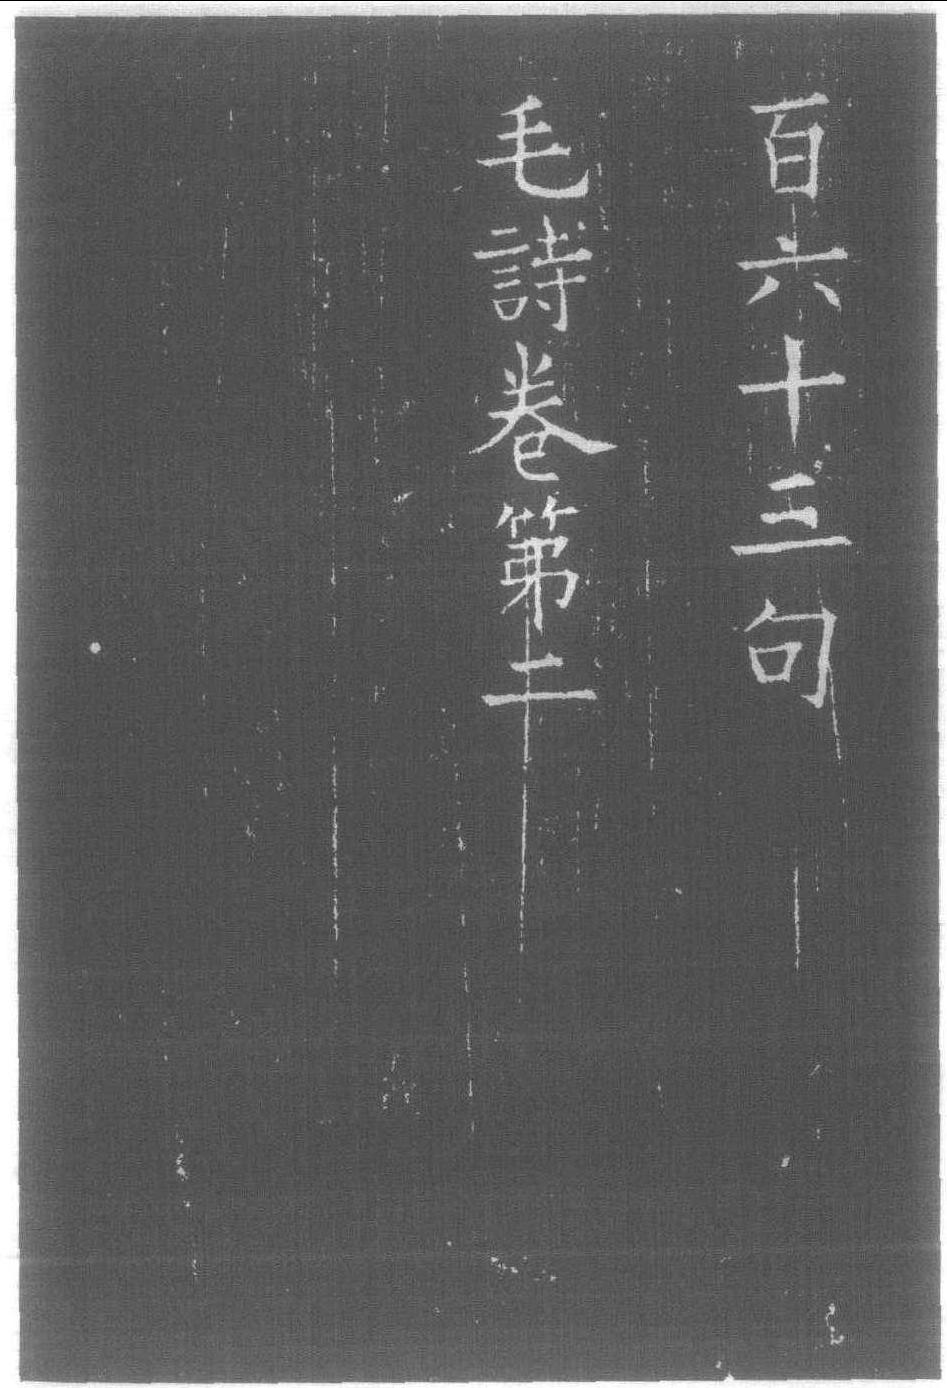 百六十三句
毛詩卷第二